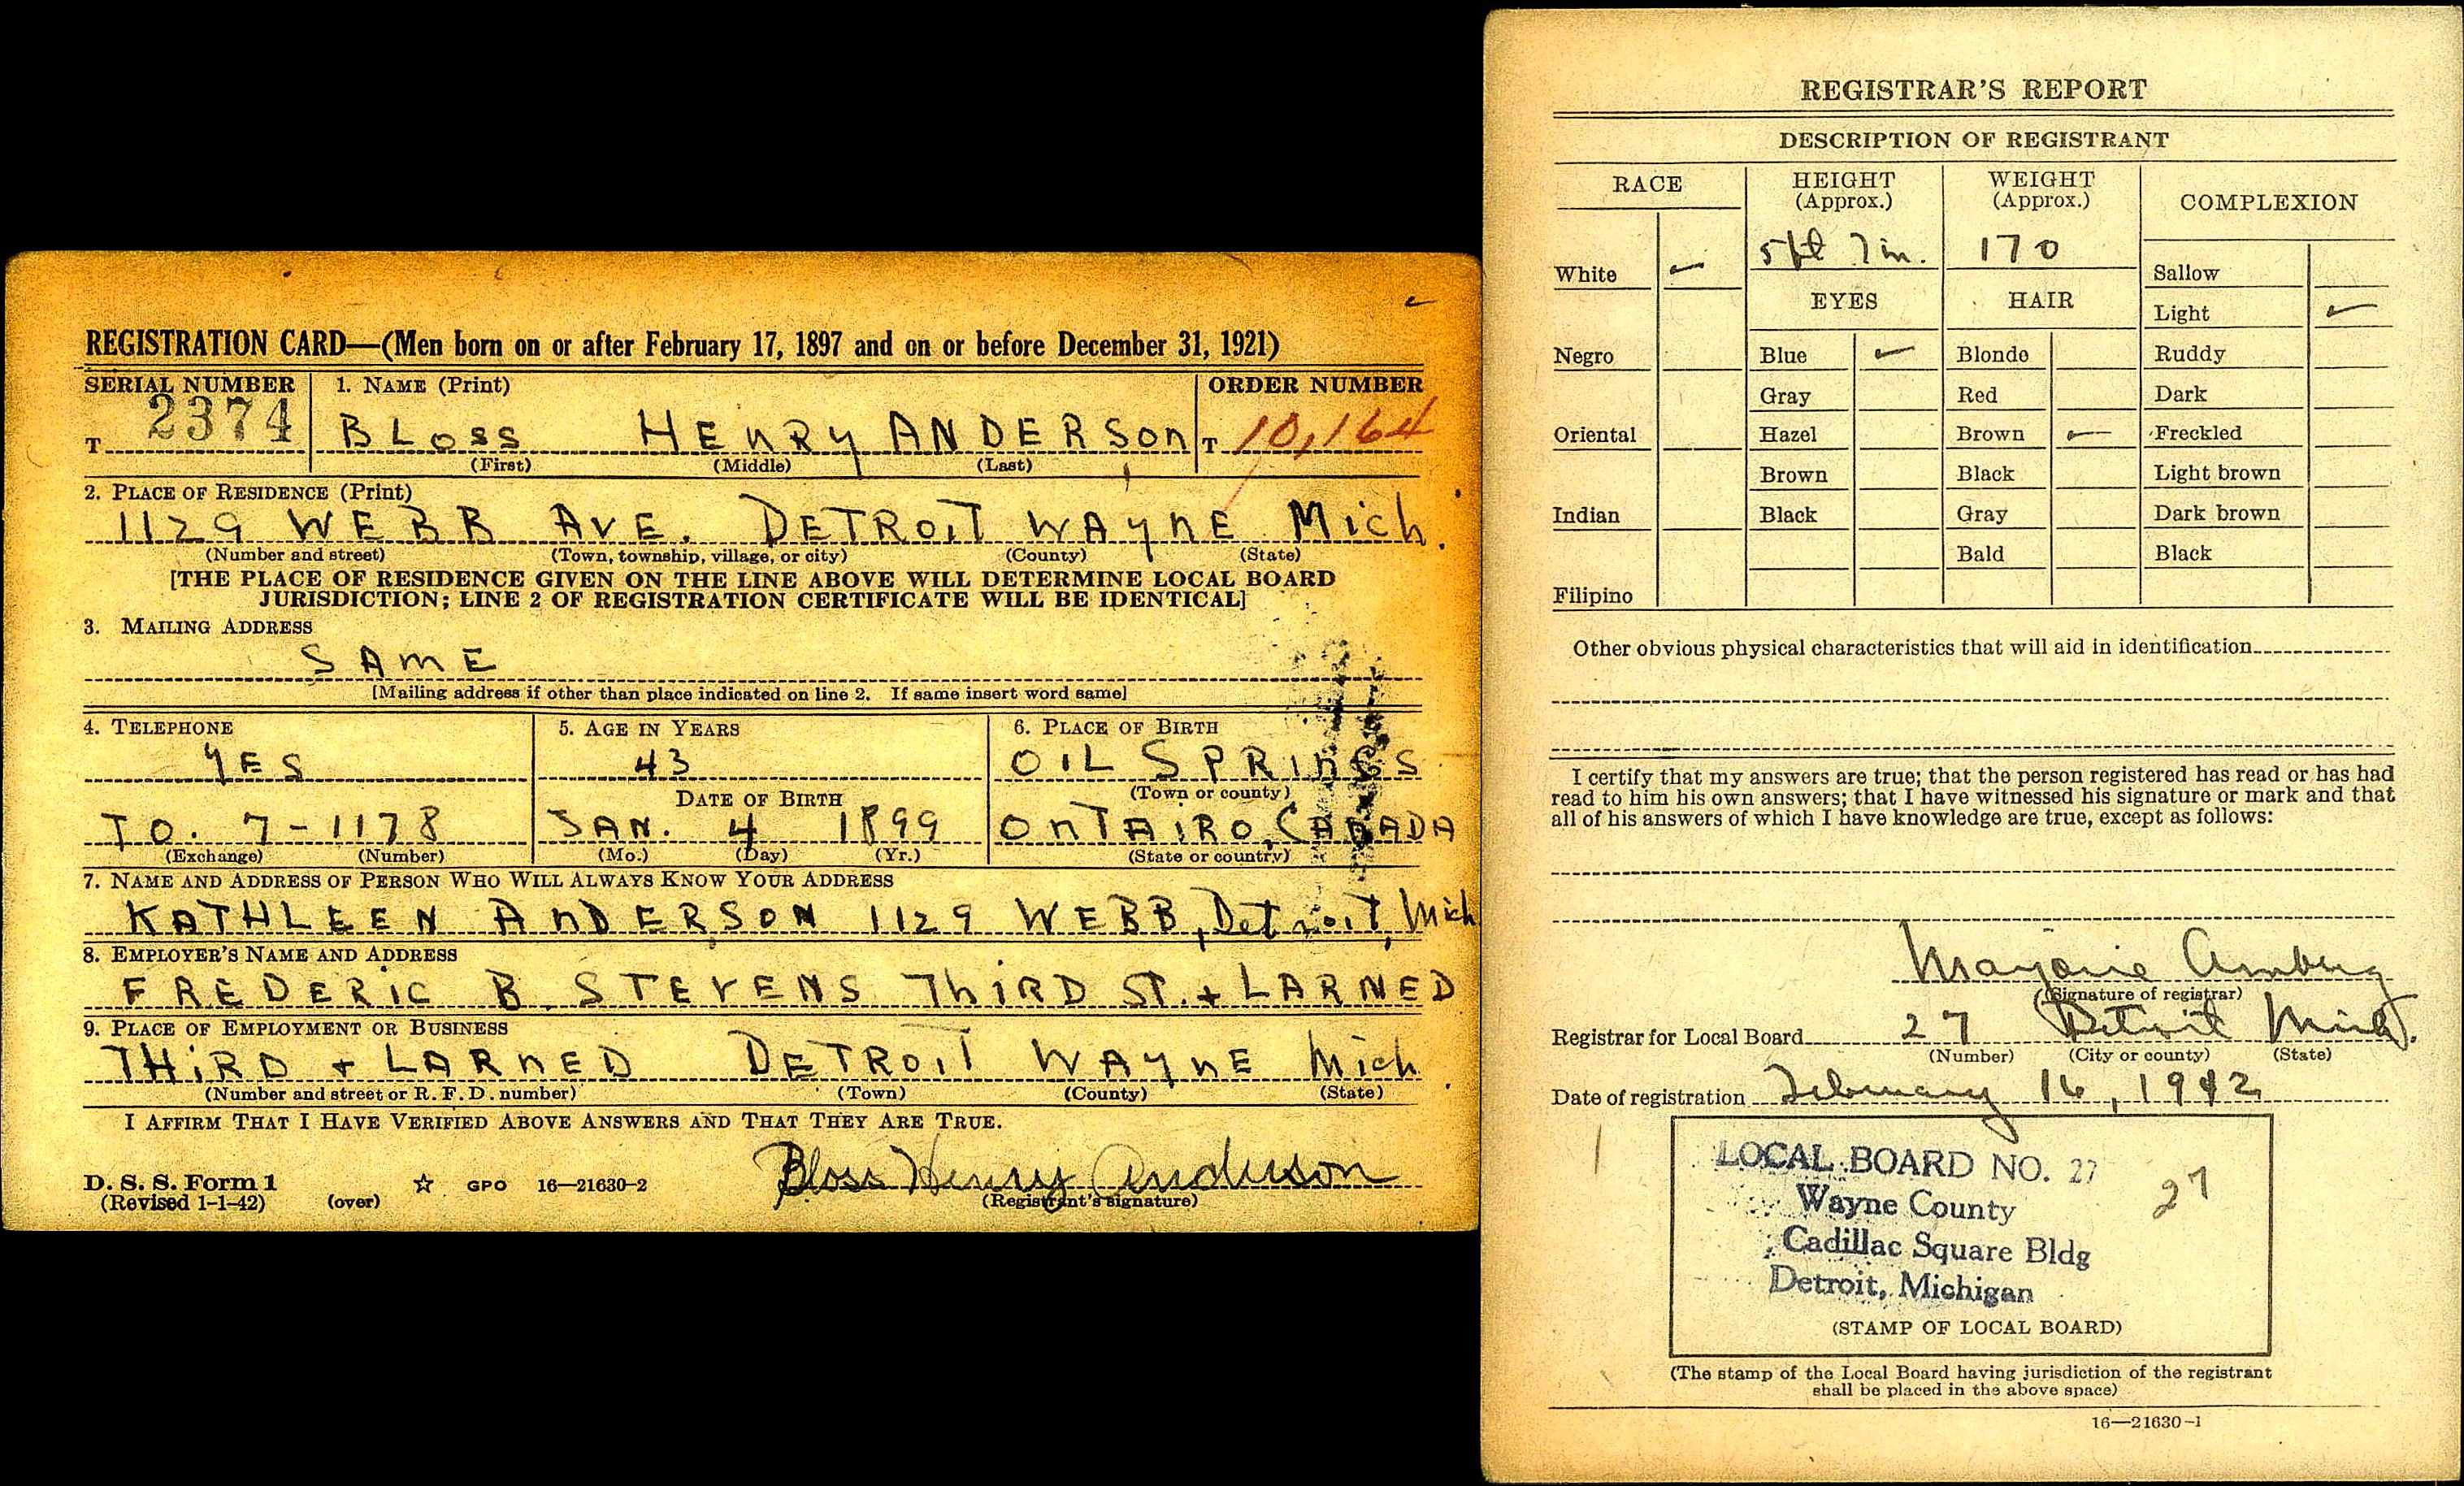 REGISTRATION CARD—(Men born on or after February 17, 1897 and on or before December 31, 1921)
SERIAL NUMBER 1. NAME (Print) ORDER NUMBER
T 2374 BLOSS HENRY ANDERSON T 10,164
(First) (Middle) (Last)
2. PLACE OF RESIDENCE (Print)
1129 WEBB AVE. DETROIT WAYNE Mich.
(Number and street) (Town, township, village, or city) (County) (State)
[THE PLACE OF RESIDENCE GIVEN ON THE LINE ABOVE WILL DETERMINE LOCAL BOARD
JURISDICTION; LINE 2 OF REGISTRATION CERTIFICATE WILL BE IDENTICAL]
3. MAILING ADDRESS
SAME
[Mailing address if other than place indicated on line 2. If same insert word same]
4. TELEPHONE 5. AGE IN YEARS 6. PLACE OF BIRTH
YES 43 OIL SPRINGS
DATE OF BIRTH (Town or county)
TO. 7-1178 JAN. 4 1899 ONTAIRO, CANADA
(Exchange) (Number) (Mo.) (Day) (Yr.) (State or country)
7. NAME AND ADDRESS OF PERSON WHO WILL ALWAYS KNOW YOUR ADDRESS
KATHLEEN ANDERSON 1129 WEBB, Detroit, Mich
8. EMPLOYER'S NAME AND ADDRESS
FREDERIC B. STEVENS THIRD ST. + LARNED
9. PLACE OF EMPLOYMENT OR BUSINESS
THIRD + LARNED DETROIT WAYNE Mich.
(Number and street or R. F. D. number) (Town) (County) (State)
I AFFIRM THAT I HAVE VERIFIED ABOVE ANSWERS AND THAT THEY ARE TRUE.
Bloss Henry Anderson
D. S. S. Form 1 ☆ GPO 16—21630-2
(Revised 1-1-42) (over) (Registrant's signature)
REGISTRAR'S REPORT
DESCRIPTION OF REGISTRANT
RACE HEIGHT (Approx.) WEIGHT (Approx.) COMPLEXION
5 ft 7 in. 170
White ✓ Sallow
EYES HAIR Light ✓
Negro Blue ✓ Blonde Ruddy
Gray Red Dark
Oriental Hazel Brown ✓ Freckled
Brown Black Light brown
Indian Black Gray Dark brown
Bald Black
Filipino
Other obvious physical characteristics that will aid in identification
I certify that my answers are true; that the person registered has read or has had
read to him his own answers; that I have witnessed his signature or mark and that
all of his answers of which I have knowledge are true, except as follows:
Marjorie Amberg
(Signature of registrar)
Registrar for Local Board 27 Detroit Mich.
(Number) (City or county) (State)
Date of registration February 16, 1942
LOCAL BOARD NO. 27
27
Wayne County
Cadillac Square Bldg
Detroit, Michigan
(STAMP OF LOCAL BOARD)
(The stamp of the Local Board having jurisdiction of the registrant
shall be placed in the above space)
16—21630-1